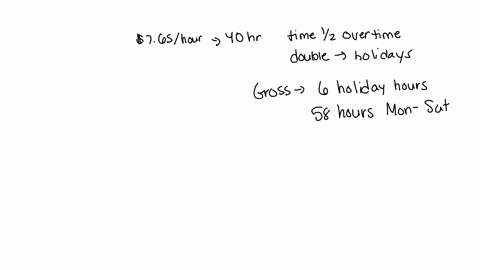 $7.65/hour → 40 hr time 1/2 overtime
double → holidays
Gross → 6 holiday hours
58 hours Mon-Sat